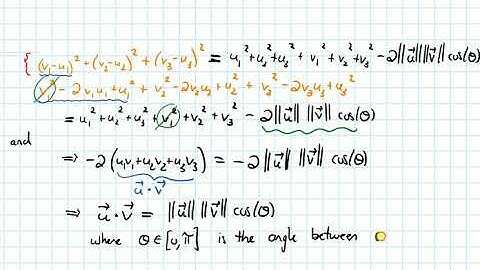 (v₁-u₁)² + (v₂-u₂)² + (v₃-u₃)² = u₁² + u₂² + u₃² + v₁² + v₂² + v₃² - 2‖u⃗‖‖v⃗‖ cos(θ)
v₁² - 2v₁u₁ + u₁² + v₂² - 2v₂u₂ + u₂² + v₃² - 2v₃u₃ + u₃²
= u₁² + u₂² + u₃² + v₁² + v₂² + v₃² - 2‖u⃗‖ ‖v⃗‖ cos(θ)
and
⇒ -2(u₁v₁ + u₂v₂ + u₃v₃) = -2‖u⃗‖ ‖v⃗‖ cos(θ)
u⃗ · v⃗
⇒ u⃗ · v⃗ = ‖u⃗‖ ‖v⃗‖ cos(θ)
where θ ∈ [0, π] is the angle between